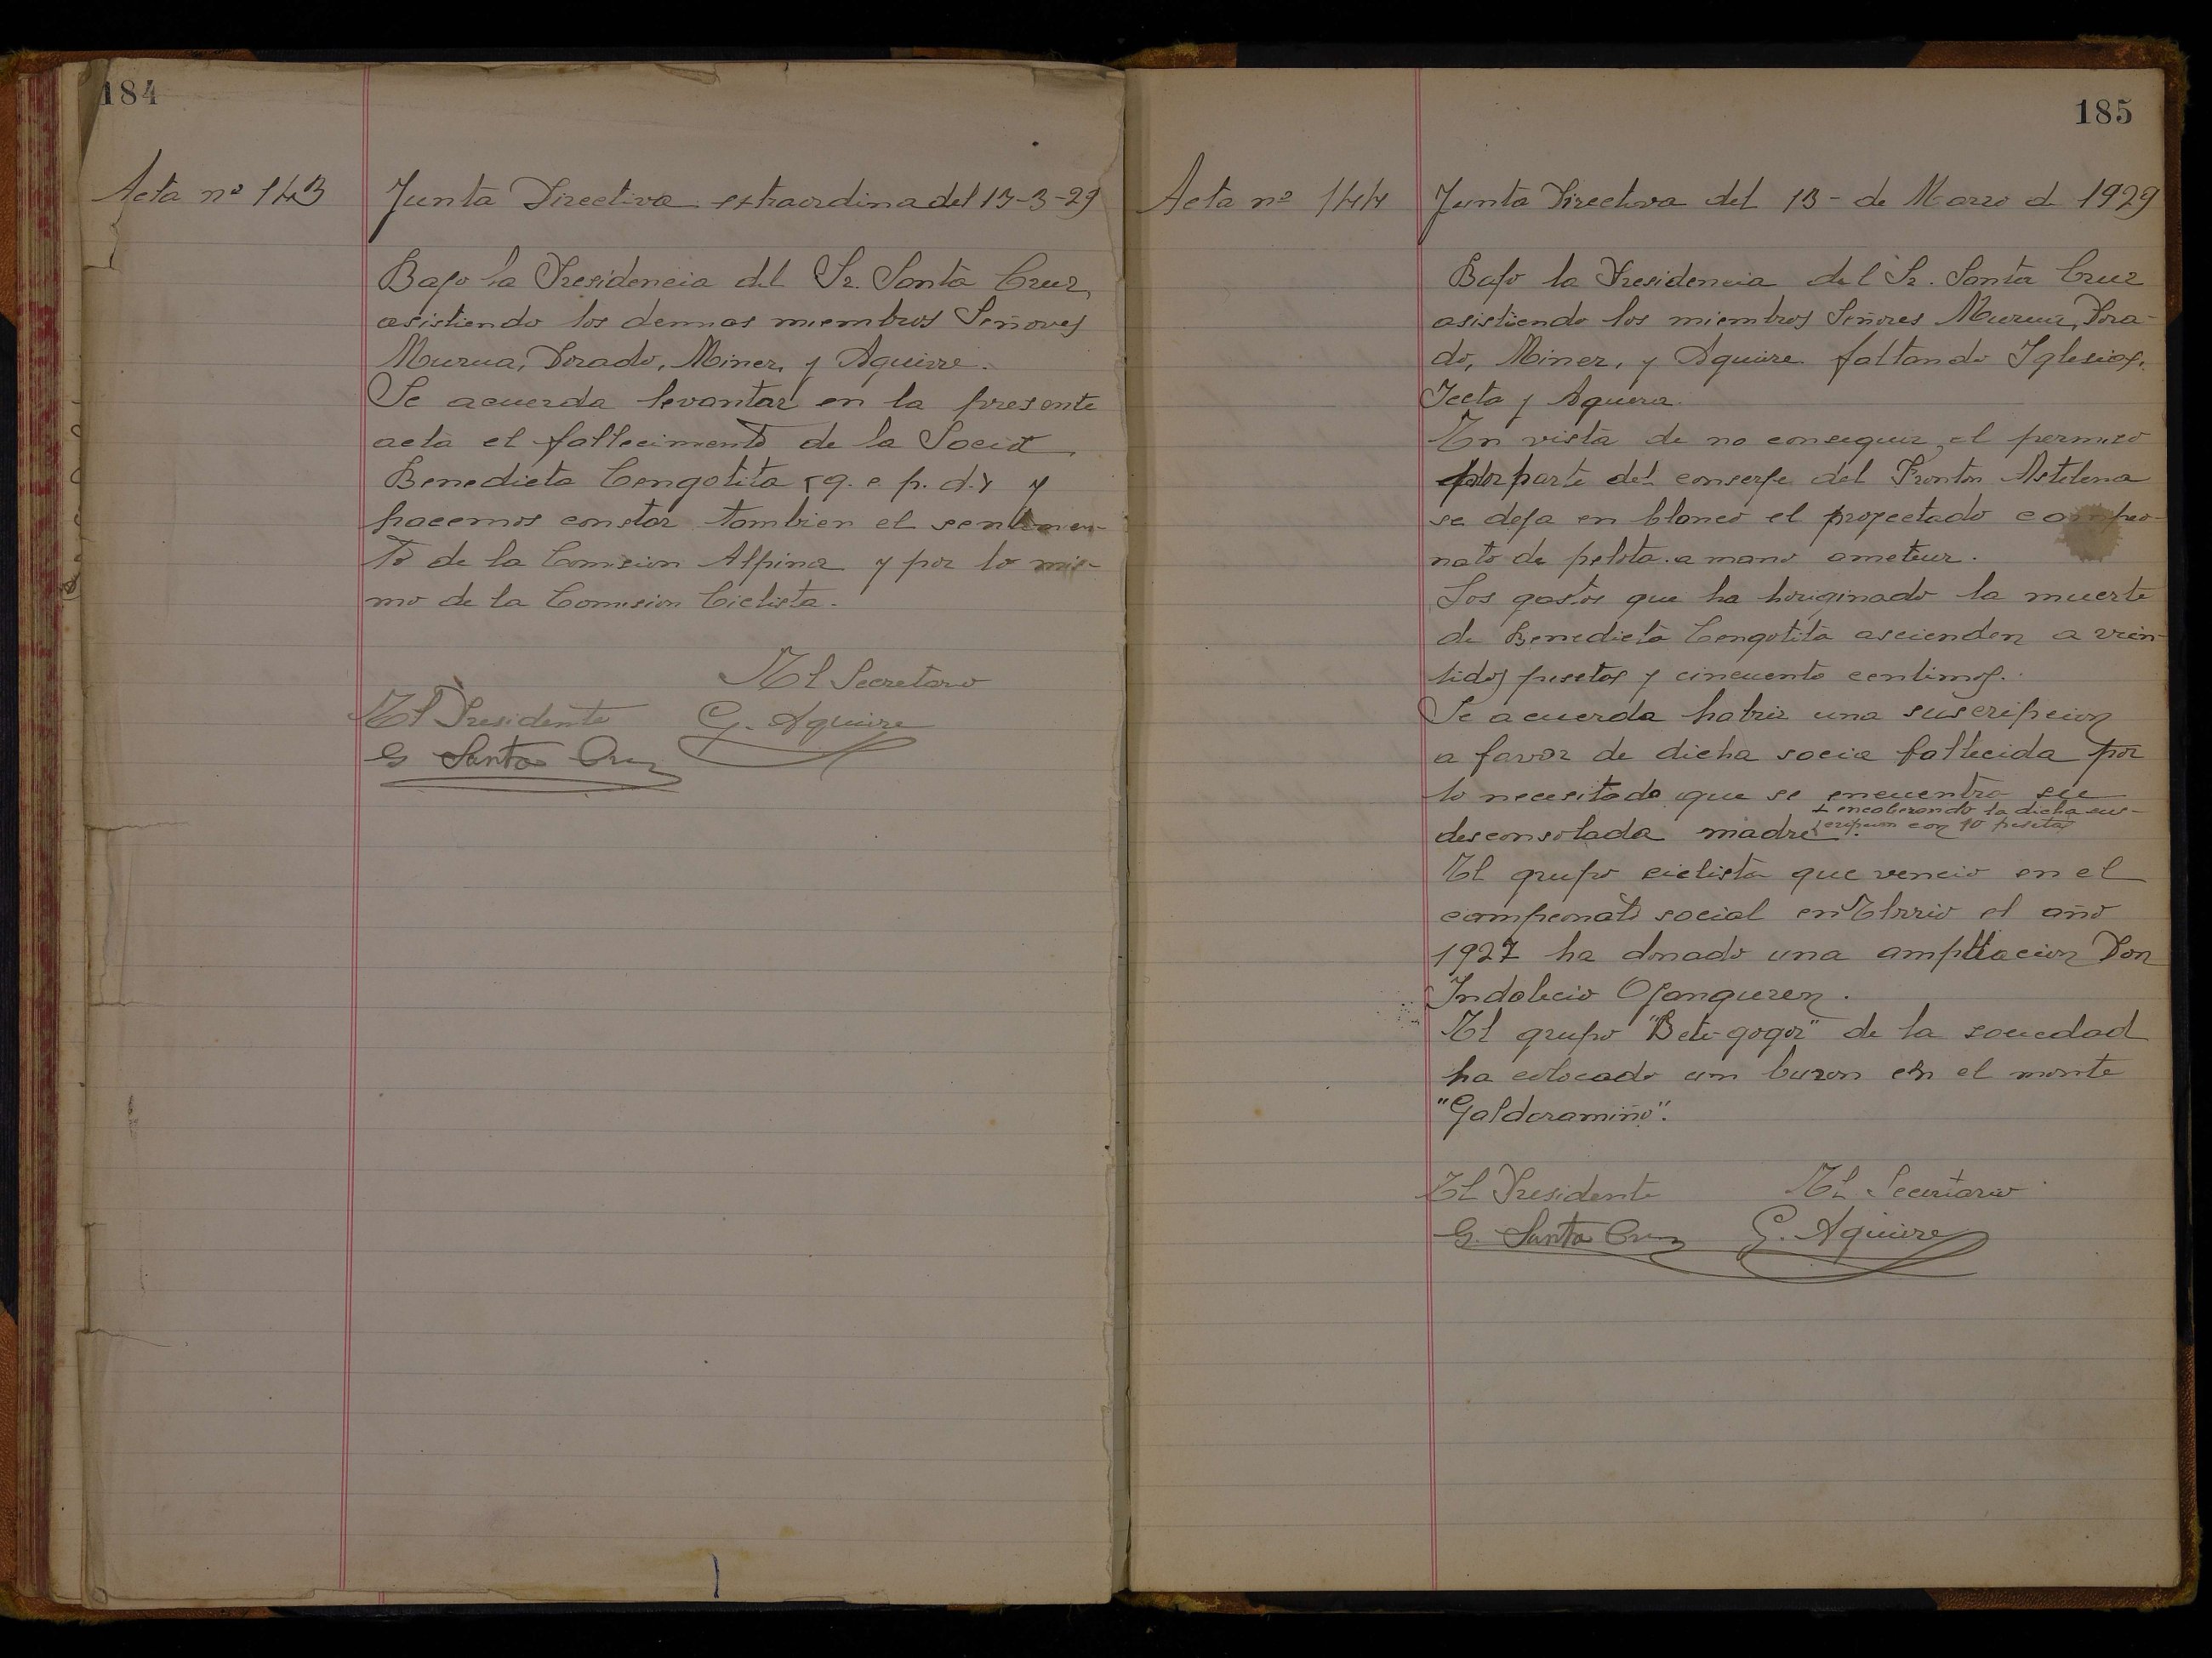 184
Acta nº 143
Junta Directiva extraordina del 13-3-29
Bajo la Presidencia del Sr. Santa Cruz,
asistiendo los demas miembros Señores
Murua, Dorado, Miner, y Aguirre.
Se acuerda levantar en la presente
acta el fallecimento de la Socia
Benedicta Cengotita (q. e. p. d.) y
hacemos constar tambien el sentimen-
to de la Comision Alpina y por lo mis-
mo de la Comision Ciclista.
El Secretaro
El Presidente G. Aguirre
G Santa Cruz
185
Acta nº 144
Junta Directiva del 13 - de Marzo d 1929
Bajo la Presidencia del Sr. Santa Cruz
asistiendo los miembros Señores Murua, Dora-
do, Miner, y Aguirre faltando Iglesias,
Tecta y Aguera.
En vista de no conseguir el permiso
por parte del conserje del Fronton Astelena
se deja en blanco el proyectado campeo-
nato de pelota a mano ameteur.
Los gastos que ha horiginado la muerte
de Benedicta Cengotita ascienden a vein-
tidos pesetas y cincuenta centimos.
Se acuerda habrir una suscripcion
a favor de dicha socia fallecida por
lo necesitada que se encuentra su
+ encaberzando la dicha sus-
desconsolada madre + cripcion con 10 pesetas.
El grupo ciclista que vencio en el
campeonato social en Elorrio el año
1927 ha donado una ampliacion Don
Indalecio Ojanguren.
El grupo "Beti-gogor" de la sociedad
ha colocado un buzon en el monte
"Galdaramiño".
El Presidente El Secretario
G. Santa Cruz G. Aguirre